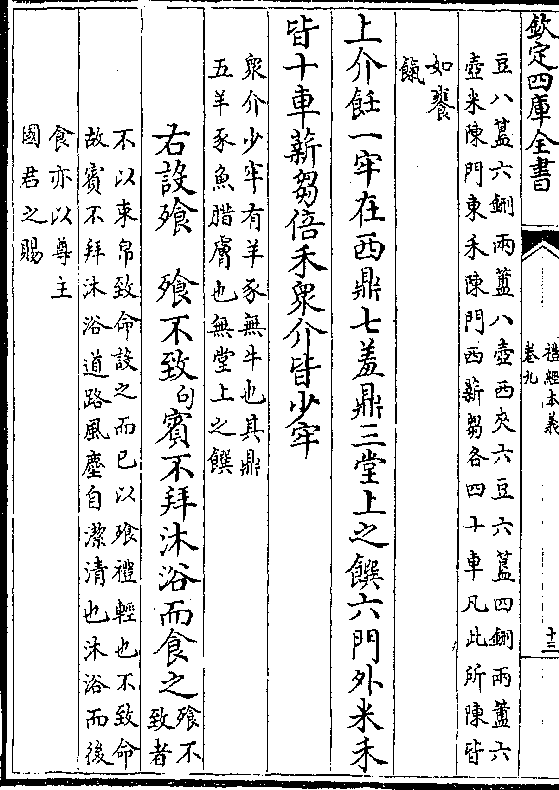 欽定四庫全書
禮經本義
卷九
十三
豆八簋六鉶兩簠八壺西夾六豆六簋四鉶兩簠六
壺米陳門東禾陳門西薪芻各四十車凡此所陳皆
如饔
餼
上介飪一牢在西鼎七羞鼎三堂上之饌六門外米禾
皆十車薪芻倍禾衆介皆少牢
衆介少牢有羊豕無牛也其鼎
五羊豕魚腊膚也無堂上之饌
右設飧 飧不致句賓不拜沐浴而食之飧不
致者
不以束帛致命設之而已以飧禮輕也不致命
故賓不拜沐浴道路風塵自潔清也沐浴而後
食亦以尊主
國君之賜